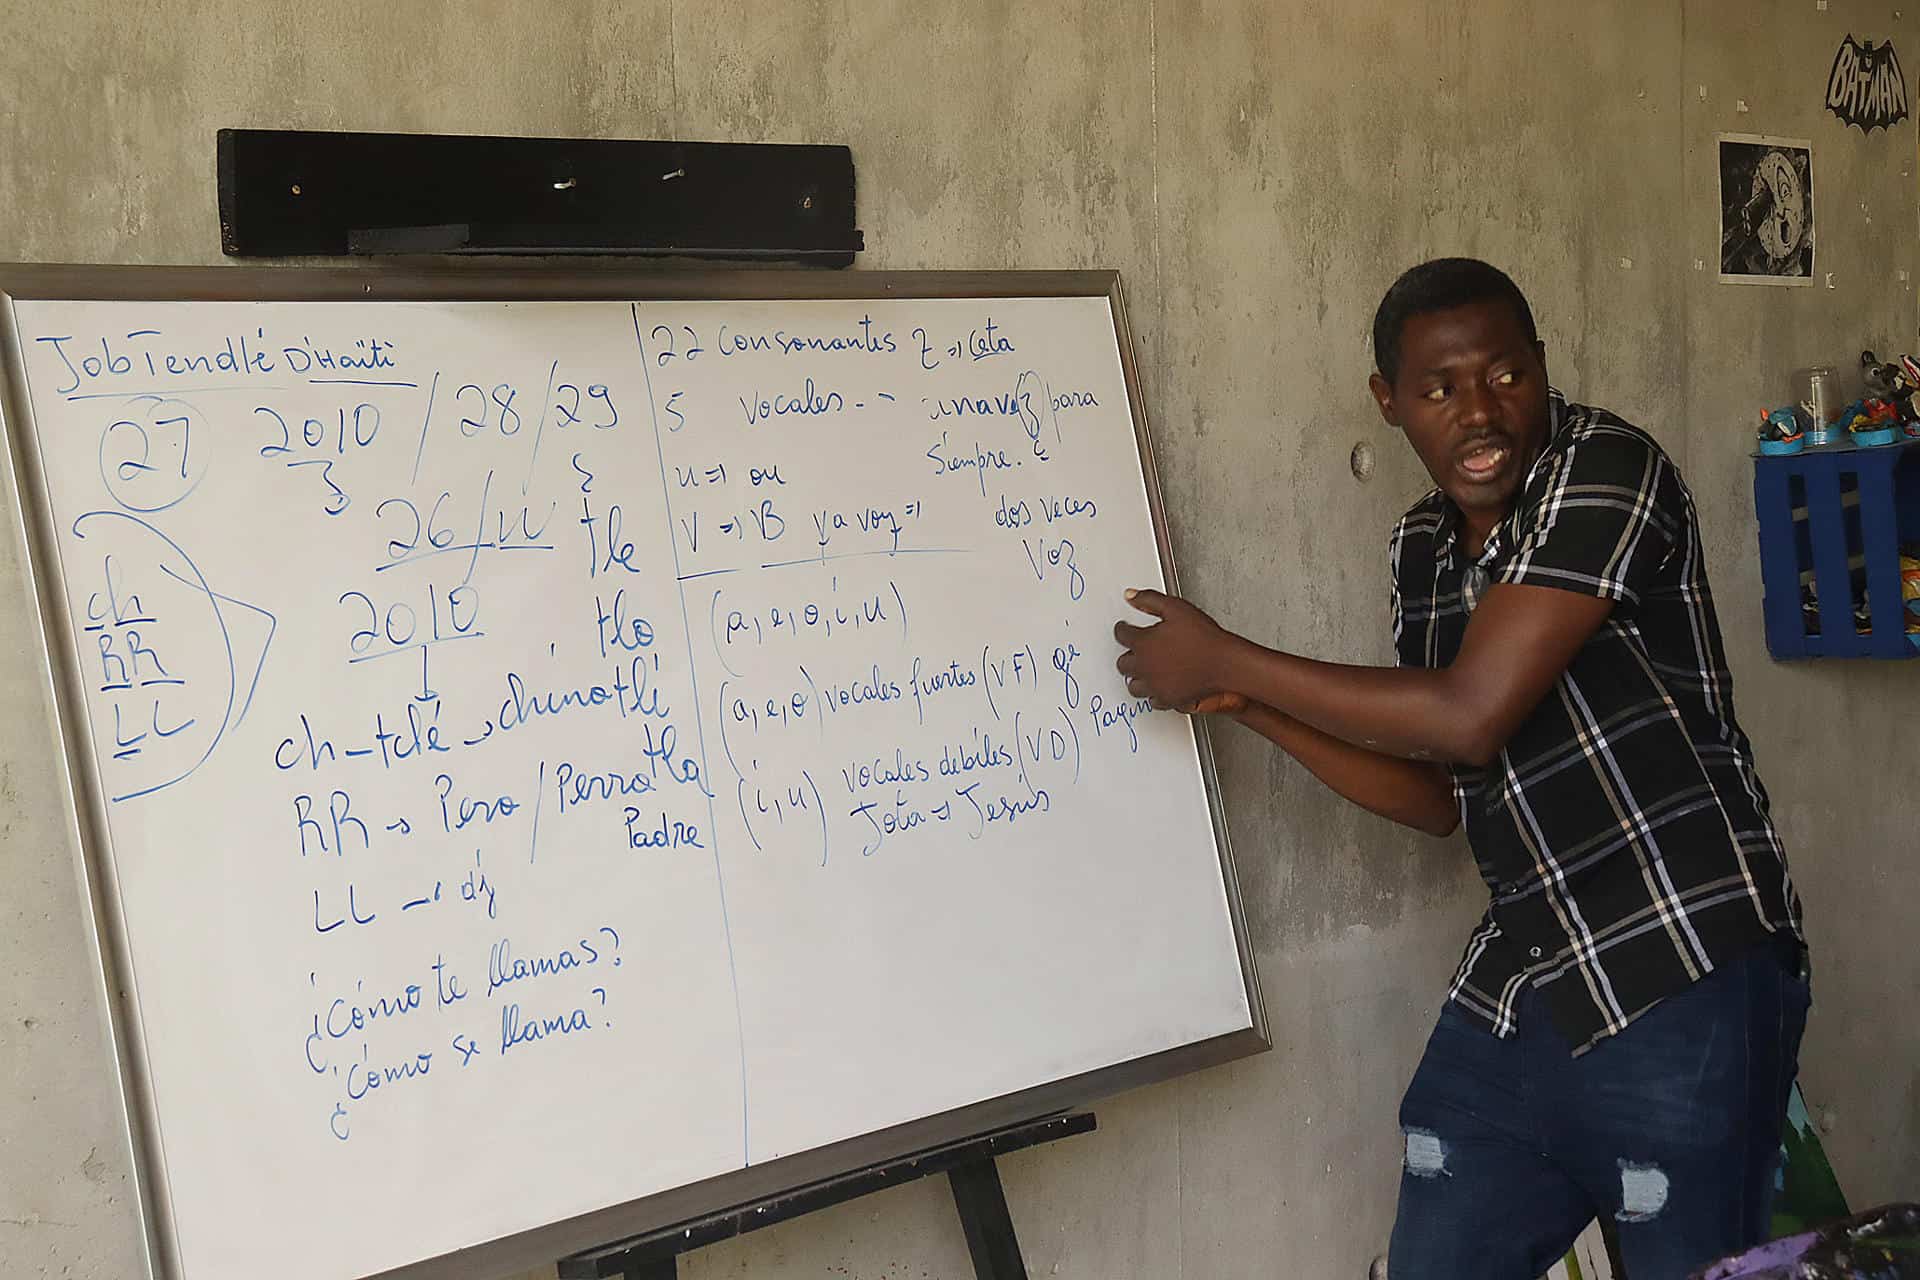 Job Tendlé D'Haïti
27 2010 / 28 / 29
26 / W
tle
ch
RR
LL
2010
tlo
ch-tclé → chinatli
tla
RR → Pero / Perro
Padre
LL → dj
¿Cómo te llamas?
¿Cómo se llama?
22 Consonantes Z => Ceta
5 vocales -- una vez para
siempre.
u => ou
V => B va voy =>
dos veces
Voz
(a, e, o, i, u)
(a, e, o) vocales fuertes (VF) gé
(i, u) vocales debiles (VD)
Jota => Jesús
BATMAN